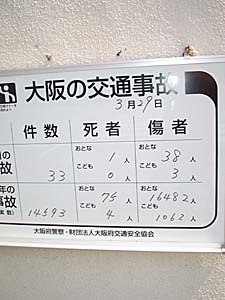 大阪の交通事故
3月29日
件数 死者 傷者
の 故 33 おとな 1人 こども 0人 おとな 38人 こども 3人
年の 事故 14593 おとな 75人 こども 4人 おとな 16482人 こども 1062人
大阪府警察・財団法人大阪府交通安全協会